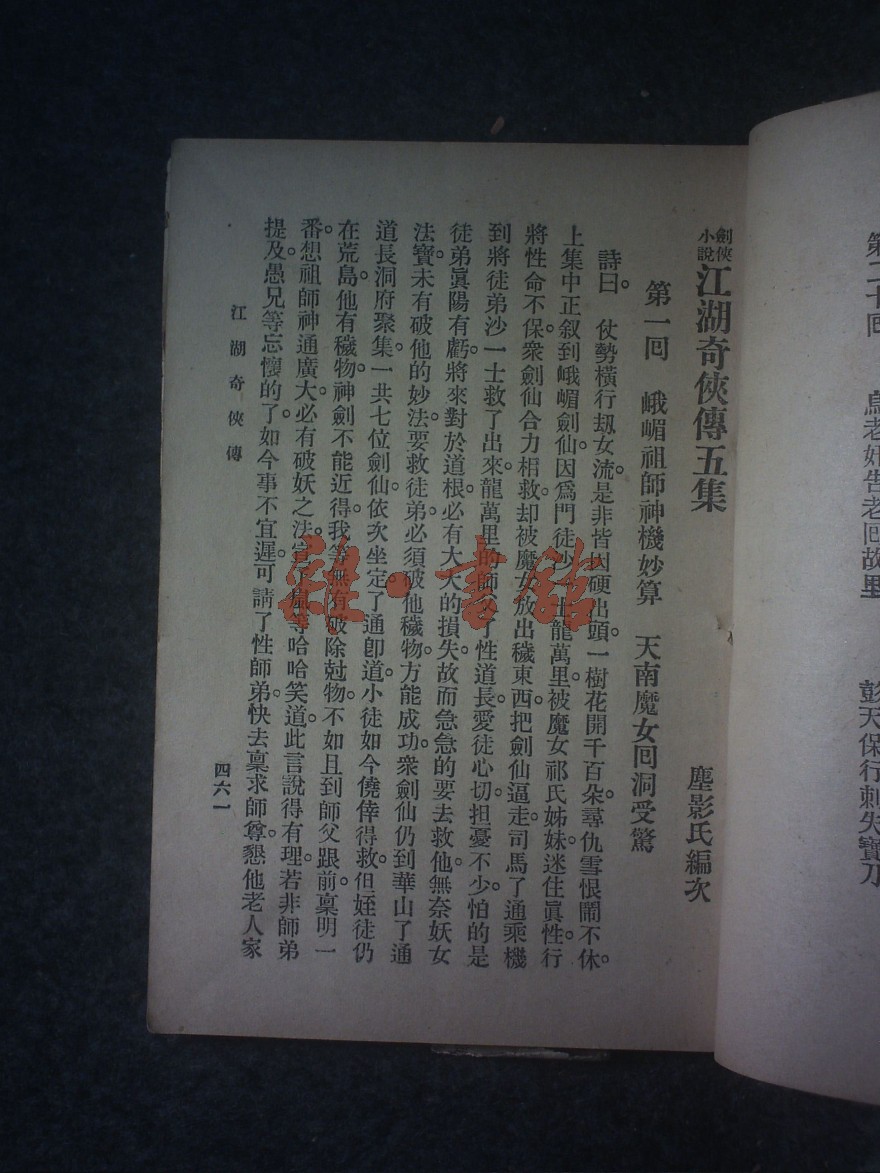 第二十回 烏老奸告老回故里 彭天保行刺失寶刀
劍俠小說 江湖奇俠傳五集
塵影氏編次
第一回 峨嵋祖師神機妙算 天南魔女回洞受驚
詩曰。仗勢橫行刼女流。是非皆因硬出頭。一樹花開千百朵。尋仇雪恨鬧不休。
上集中正叙到峨嵋劍仙因爲門徒沙一士龍萬里被魔女祁氏姊妹迷住眞性行
將性命不保。衆劍仙合力相救。却被魔女放出穢東西。把劍仙逼走。司馬了通乘機
到將徒弟沙一士救了出來。龍萬里的師父了性道長。愛徒心切。担憂不少。怕的是
徒弟眞陽有虧。將來對於道根。必有大大的損失。故而急急的要去救他。無奈妖女
法寶。未有破他的妙法。要救徒弟。必須破他穢物。方能成功。衆劍仙仍到華山了通
道長洞府聚集。一共七位劍仙。依次坐定。了通卽道。小徒如今僥倖得救。但姪徒仍
在荒島。他有穢物。神劍不能近得。我等無有破除尅物。不如且到師父跟前。稟明一
番。想祖師神通廣大。必有破妖之法。等哈哈笑道。此言說得有理。若非師弟
提及。愚兄等忘懷的了。如今事不宜遲。可請了性師弟。快去稟求師尊。懇他老人家
江湖奇俠傳
四六一
雜·書館